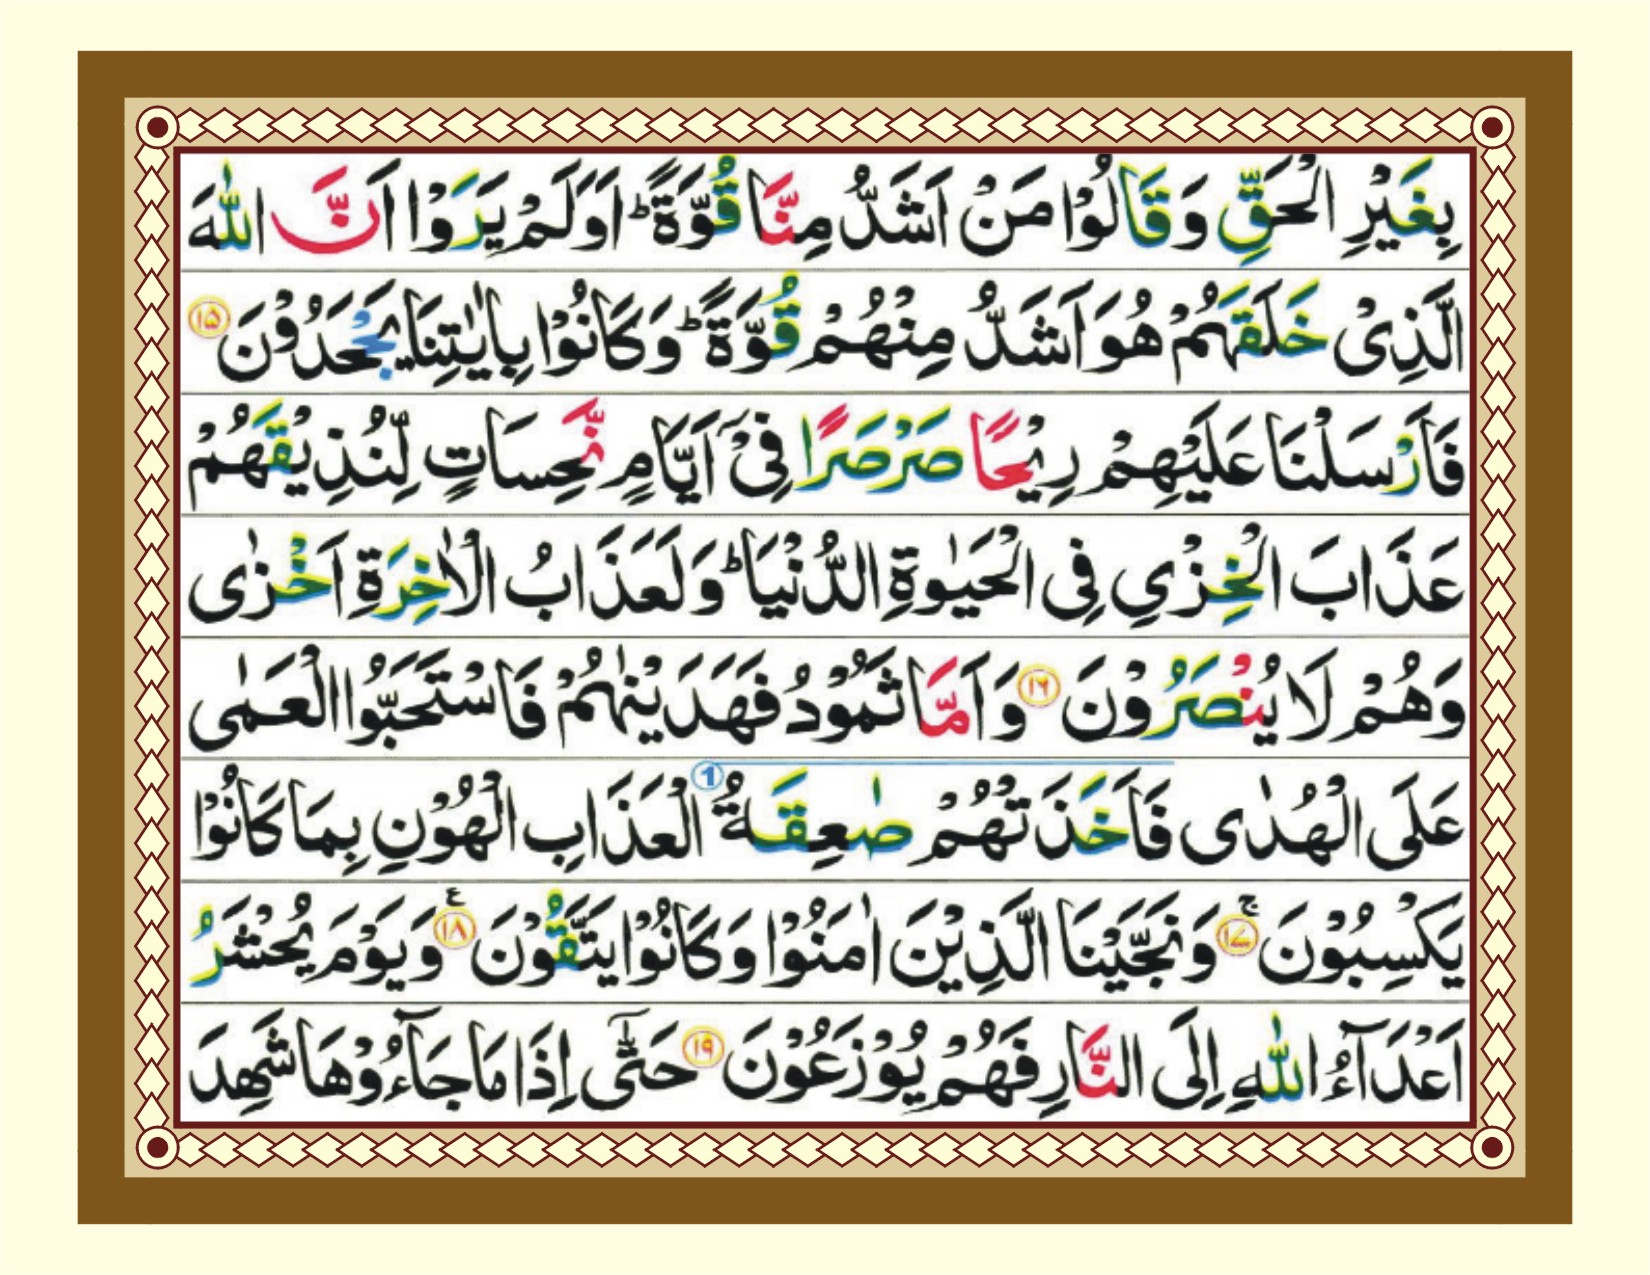 بِغَيْرِ الْحَقِّ وَقَالُوْا مَنْ اَشَدُّ مِنَّا قُوَّةً ؕ اَوَلَمْ يَرَوْا اَنَّ اللّٰهَ
الَّذِىْ خَلَقَهُمْ هُوَ اَشَدُّ مِنْهُمْ قُوَّةً ؕ وَكَانُوْا بِاٰيٰتِنَا يَجْحَدُوْنَ ۱۵
فَاَرْسَلْنَا عَلَيْهِمْ رِيْحًا صَرْصَرًا فِىْۤ اَيَّامٍ نَّحِسَاتٍ لِّنُذِيْقَهُمْ
عَذَابَ الْخِزْىِ فِى الْحَيٰوةِ الدُّنْيَا ؕ وَلَعَذَابُ الْاٰخِرَةِ اَخْزٰى
وَهُمْ لَا يُنْصَرُوْنَ ۱۶ وَاَمَّا ثَمُوْدُ فَهَدَيْنٰهُمْ فَاسْتَحَبُّوا الْعَمٰى
عَلَى الْهُدٰى فَاَخَذَتْهُمْ صٰعِقَةُ 1 الْعَذَابِ الْهُوْنِ بِمَا كَانُوْا
يَكْسِبُوْنَ ۚ ۱۷ وَنَجَّيْنَا الَّذِيْنَ اٰمَنُوْا وَكَانُوْا يَتَّقُوْنَ ۱۸ ع وَيَوْمَ يُحْشَرُ
اَعْدَآءُ اللّٰهِ اِلَى النَّارِ فَهُمْ يُوْزَعُوْنَ ۱۹ حَتّٰٓى اِذَا مَا جَآءُوْهَا شَهِدَ